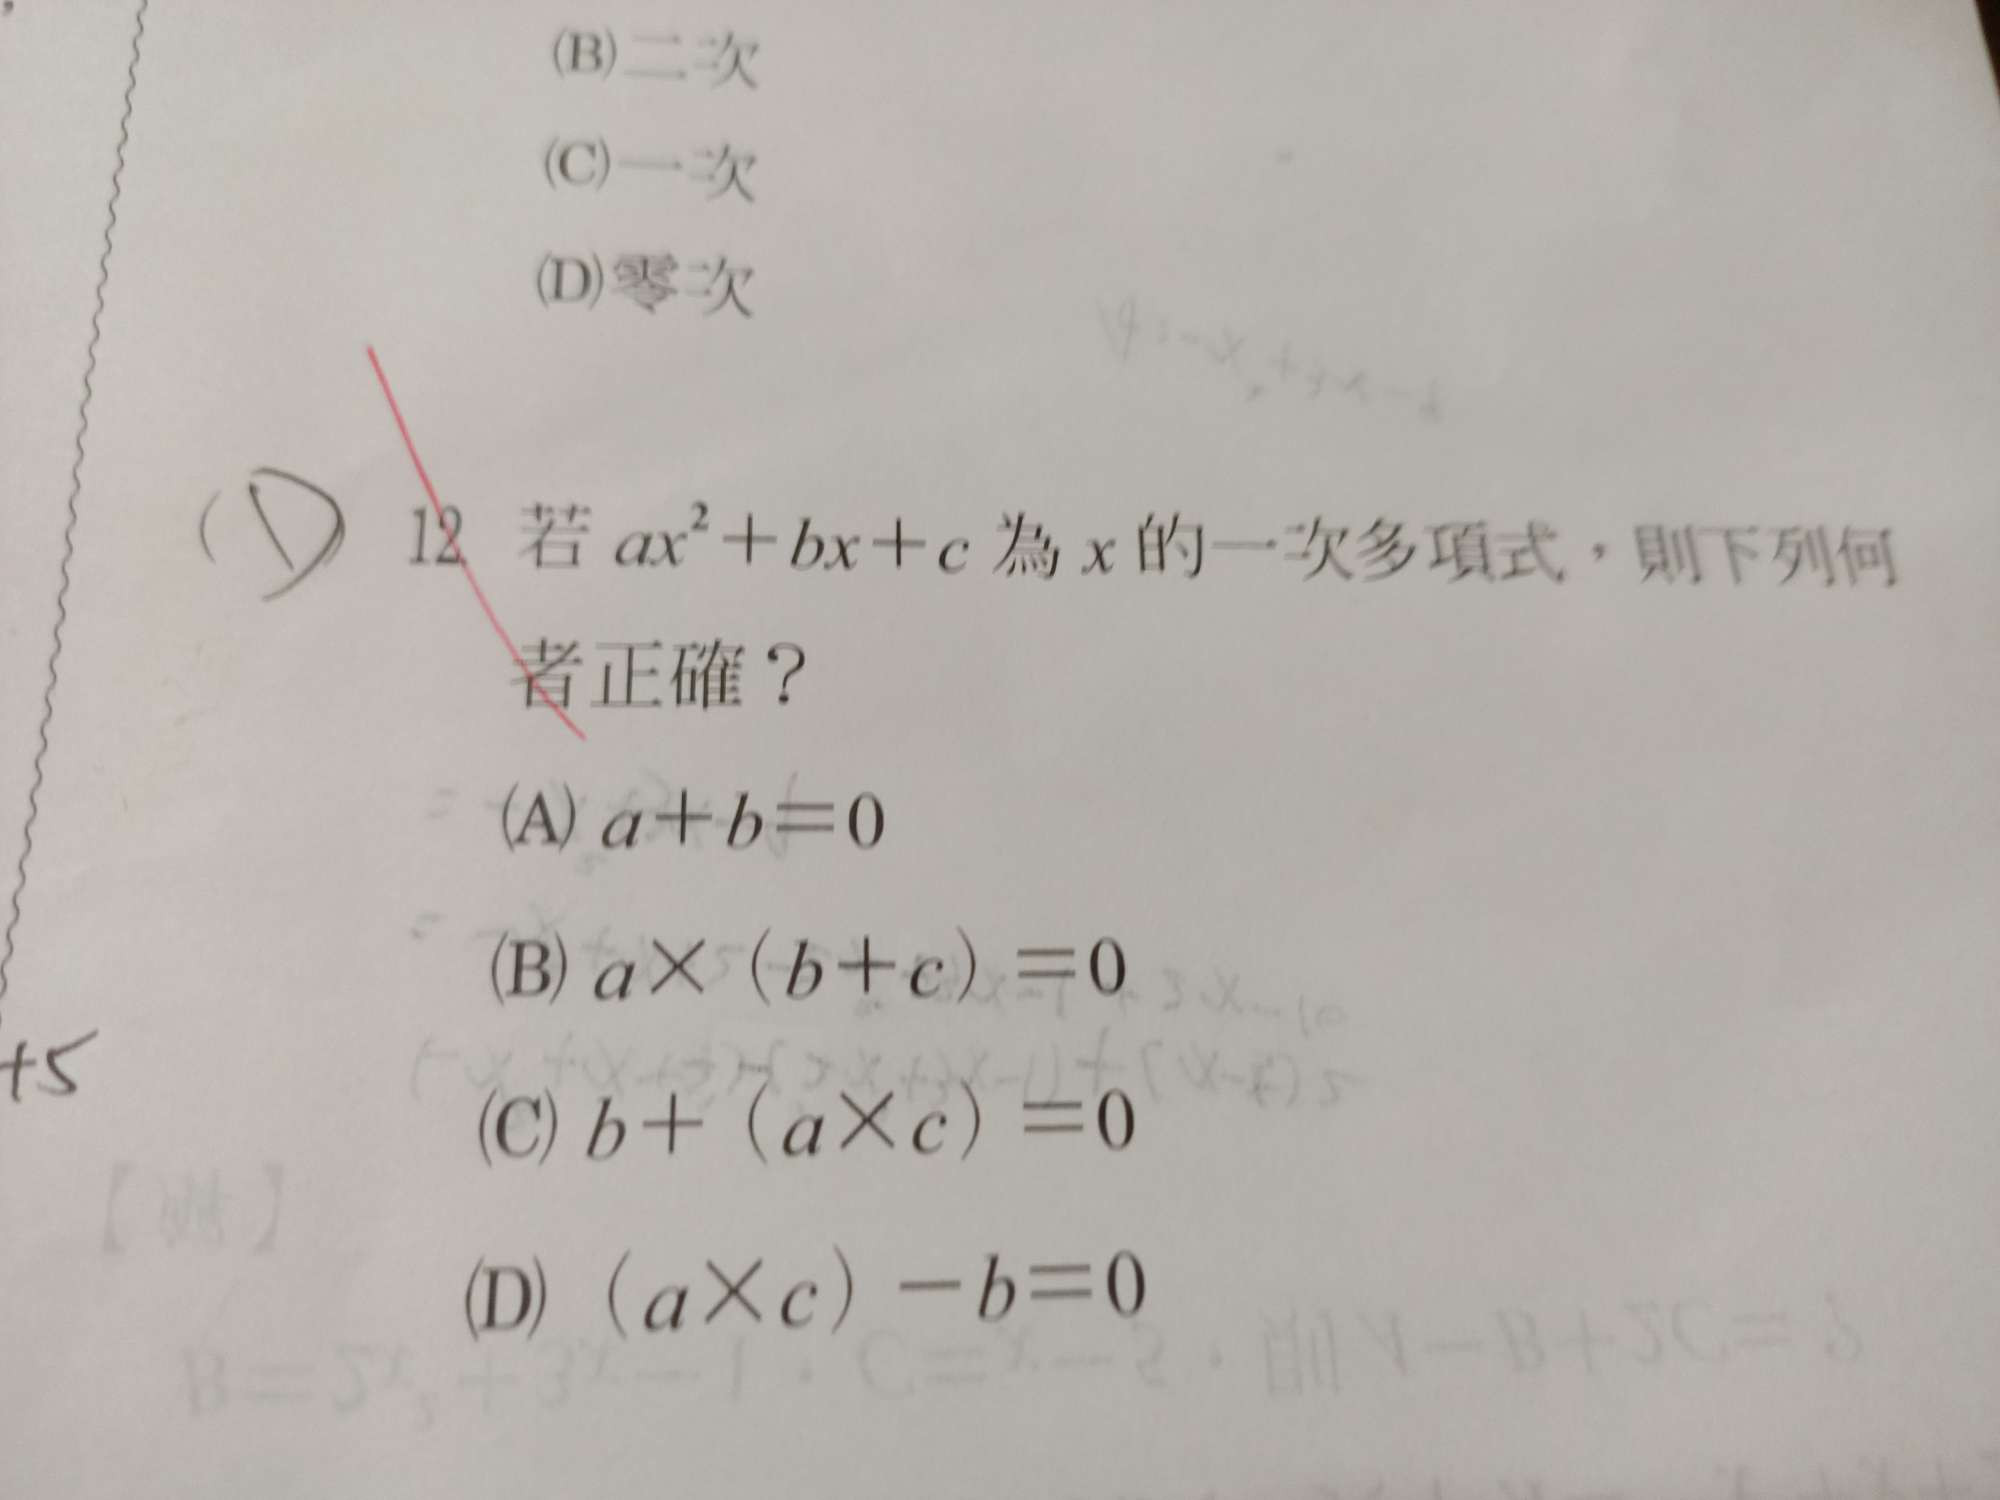 (B)二次
(C)一次
(D)零次
(D) 12 若 ax²+bx+c 為 x 的一次多項式，則下列何
者正確？
(A) a+b=0
(B) a×（b+c）=0
+5
(C) b+（a×c）=0
(D)（a×c）-b=0